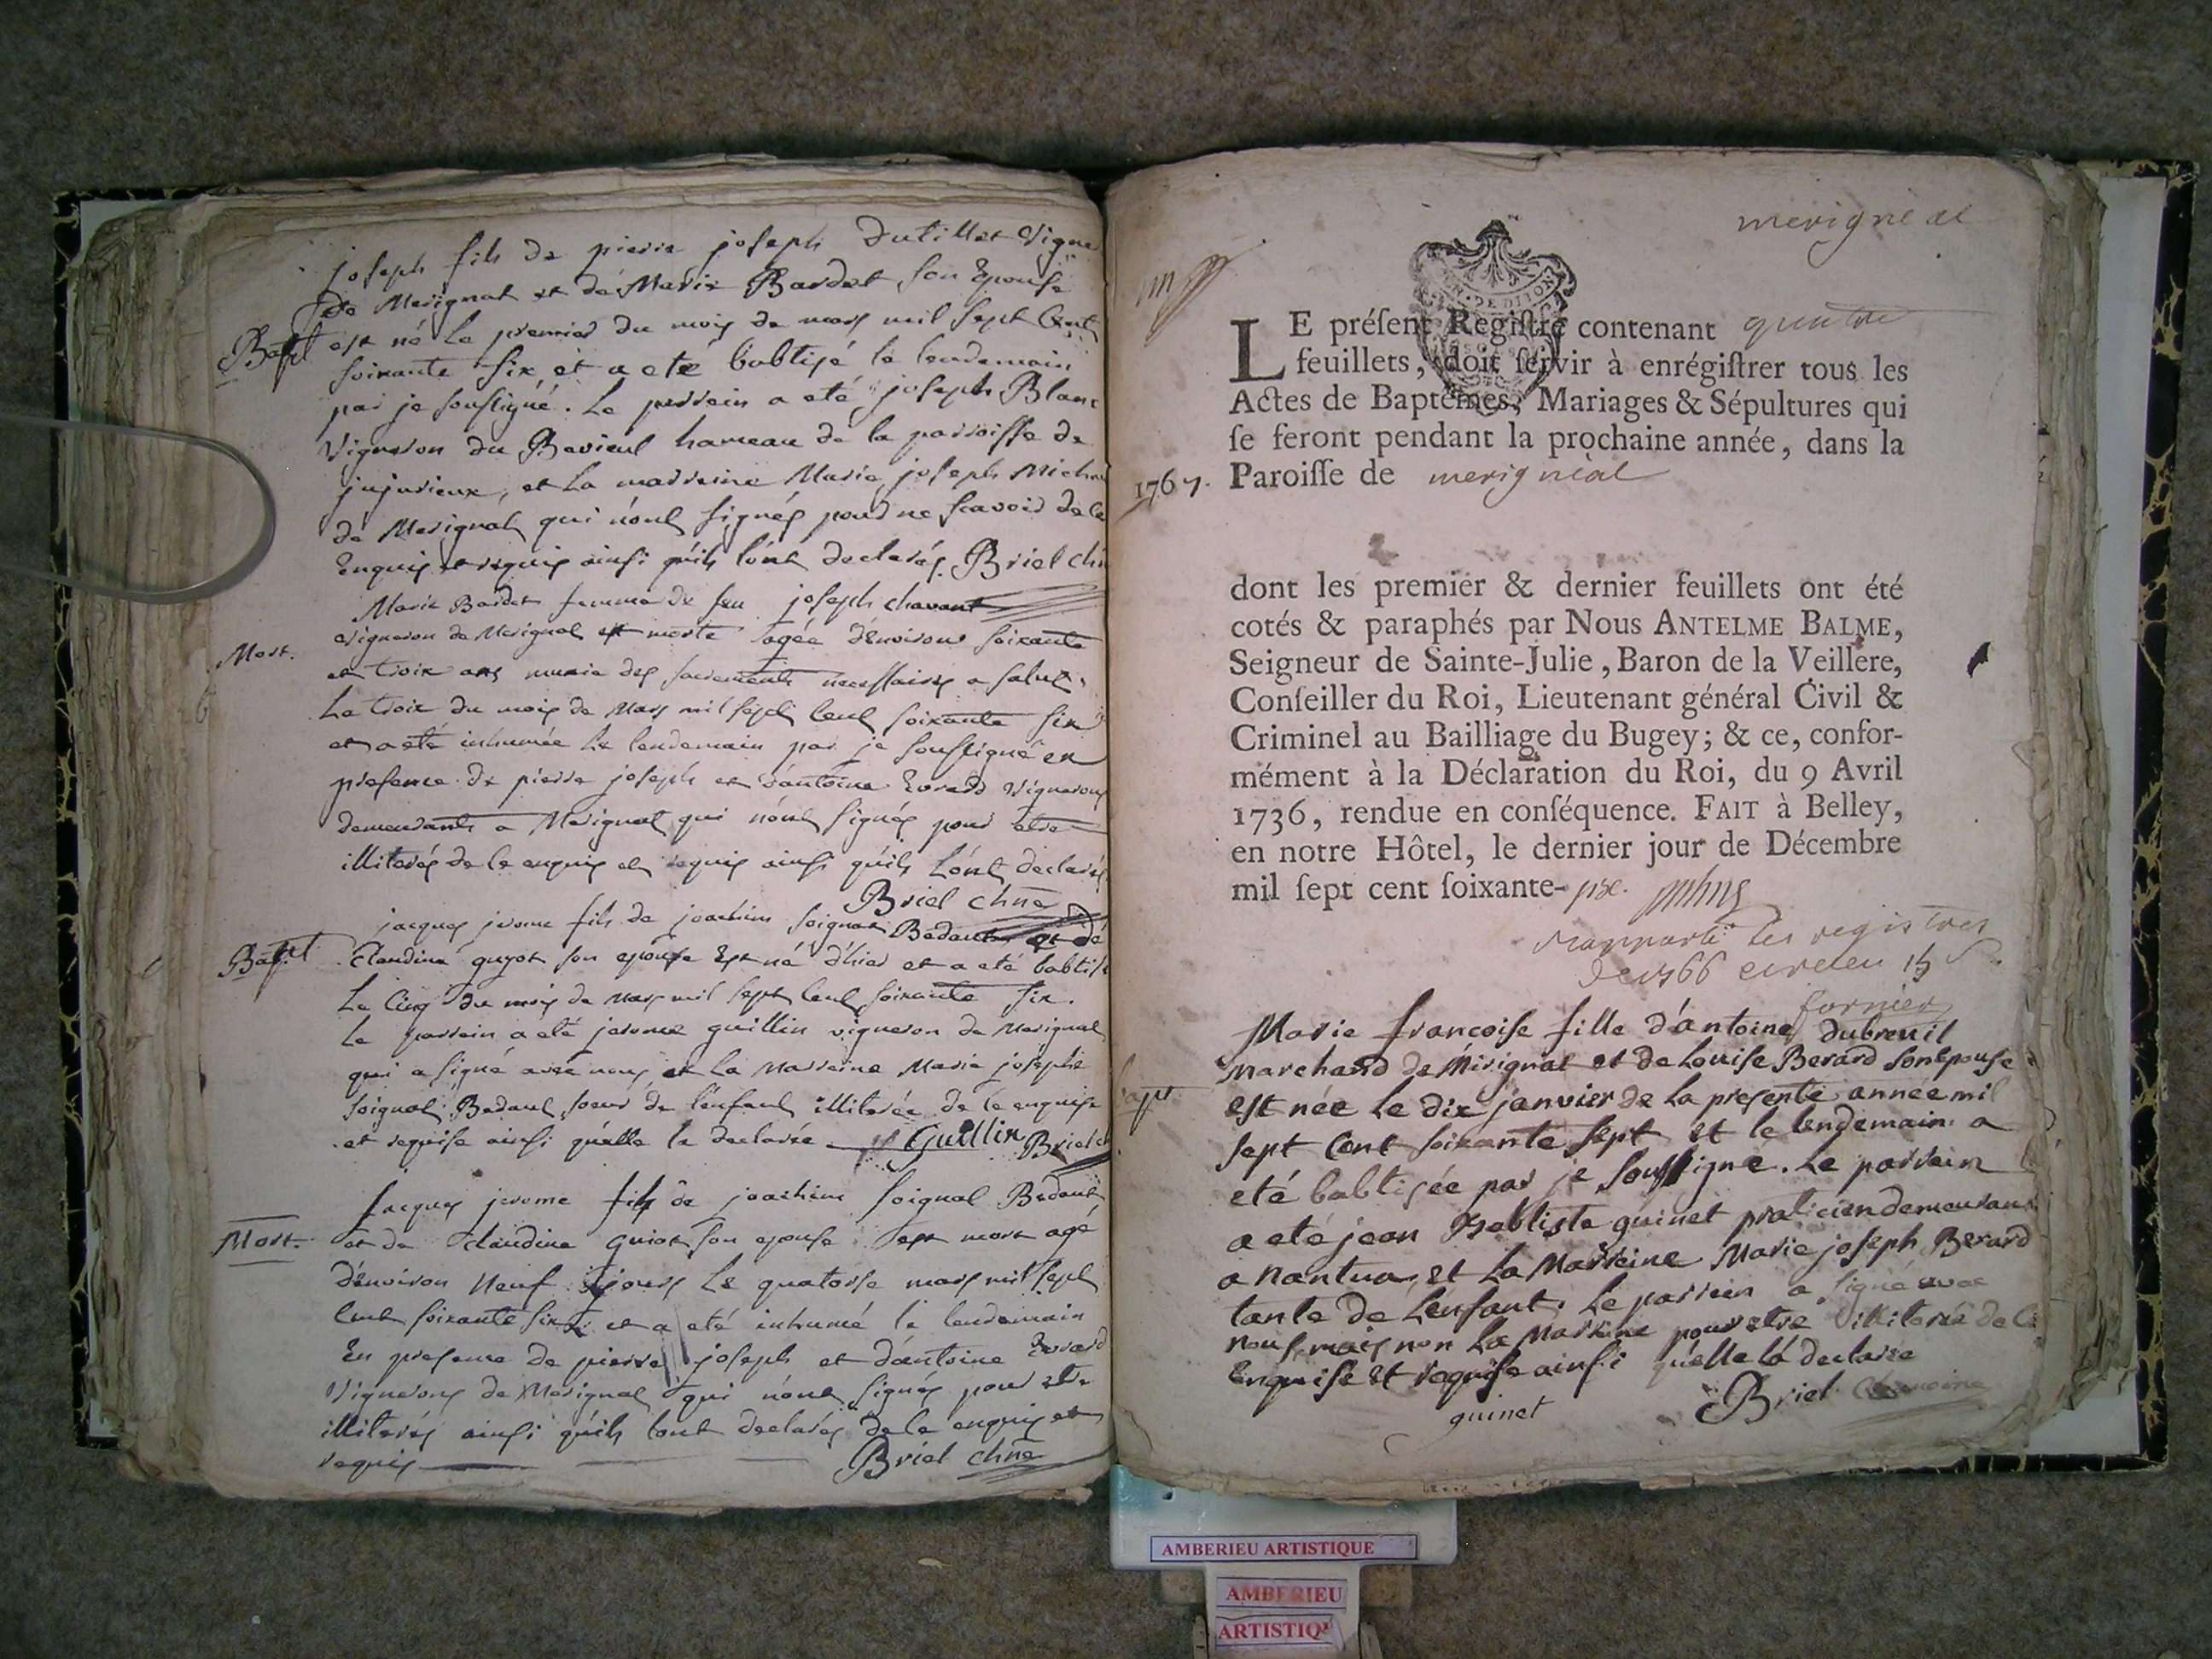 joseph fils de pierre joseph Dutillet Vigne
de Merignat et de Marie Bardet son Epouse
Bapt est né Le premier du mois de mars mil sept Cent
soixante six et a eté babtisé le lendemain
par je soussigné. Le parrein a eté joseph Blanc
Vigneron du Bevieul hameau de la parroisse de
jujurieux, et La marreine Marie joseph Micha
de Merignat qui n'ont signés pour ne scavoir de ce
Enquis et requis ainsi qu'ils l'ont declarés. Briel chne
Marie Bardet femme de feu joseph chavant
Mort. vigneron de Merignat est morte agée d'environ soixante
et troix ans munie des sacrements necessaires a salut,
Le troix du mois de Mars mil sept Cent soixante six
et a eté inhumée Le lendemain par je soussigné en
presence de pierre joseph et d'antoine Evrard Vignerons
demeurants a Merignat qui n'ont signés pour etre
illiterés de ce enquis et requis ainsi qu'ils L'ont declarés
Briel chne
jacques jerome fils de joachim soignat Bedaut et de
Bapt Claudine guyot son epouse Est né d'hier et a eté babtisé
Le Cinq du mois de Mars mil sept Cent soixante six.
Le parrein a eté jerome guillin vigneron de Merignat
qui a signé avec nous et La Marreine Marie josephe
soignat Bedaut soeur de l'enfant illiterée de ce enquise
et requise ainsi qu'elle la declarée Guillin Briel ch
Jacques jerome fils de joachim soignat Bedaut
Mort. et de Claudine Guiot son epouse est mort agé
d'environ Neuf jours Le quatorse mars mil sept
Cent soixante six et a eté inhumé le lendemain
En presence de pierre joseph et d'antoine Evrard
Vignerons de Merignat qui n'ont signés pour etre
illiterés ainsi qu'ils l'ont declarés de ce enquis et
requis Briel chne
merignéat
LE préſent Regiſtre contenant quatre
feuillets, doit ſervir à enrégiſtrer tous les
Actes de Baptêmes, Mariages & Sépultures qui
ſe feront pendant la prochaine année, dans la
1767. Paroiſſe de merignéat
dont les premier & dernier feuillets ont été
cotés & paraphés par Nous ANTELME BALME,
Seigneur de Sainte-Julie, Baron de la Veillere,
Conſeiller du Roi, Lieutenant général Civil &
Criminel au Bailliage du Bugey; & ce, confor-
mément à la Déclaration du Roi, du 9 Avril
1736, rendue en conſéquence. FAIT à Belley,
en notre Hôtel, le dernier jour de Décembre
mil ſept cent ſoixante-
rapporté les registres
de 1766
fornier
Marie francoise fille d'antoine dubreuil
Marchand de Mirignat et de Louise Berard son Epouse
est née Le dix janvier de La presente année mil
sept Cent soixante sept et le lendemain a
eté babtisée par je soussigné. Le parrein
a eté jean Babtiste guinet praticien demeurant
a nantua et La Marreine Marie joseph Berard
tante de L'enfant. Le parrein a signé avec
nous, mais non La Marreine pour etre illiterée de ce
Enquise et requise ainsi qu'elle l'a declarée
guinet Briel Chanoine
AMBERIEU ARTISTIQUE
AMBERIEU
ARTISTIQ